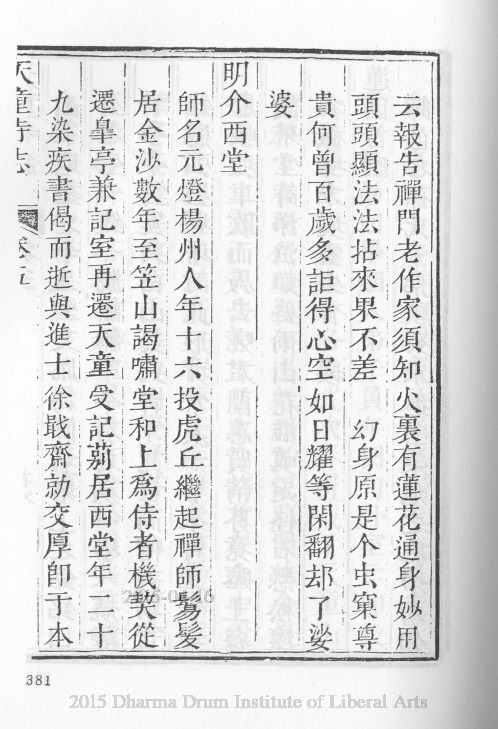 云報告禪門老作家須知火裏有蓮花通身妙用
頭頭顯法法拈來果不差　幻身原是个虫窠尊
貴何曾百歲多詎得心空如日耀等閑翻却了娑
婆
明介西堂
師名元燈楊州人年十六投虎丘繼起禪師鬀髮
居金沙數年至笠山謁嘯堂和上爲侍者機契從
遷臯亭兼記室再遷天童受記莂居西堂年二十
九染疾書偈而逝與進士徐戩齋勍交厚卽于本
天童寺志　卷五
381
2015 Dharma Drum Institute of Liberal Arts